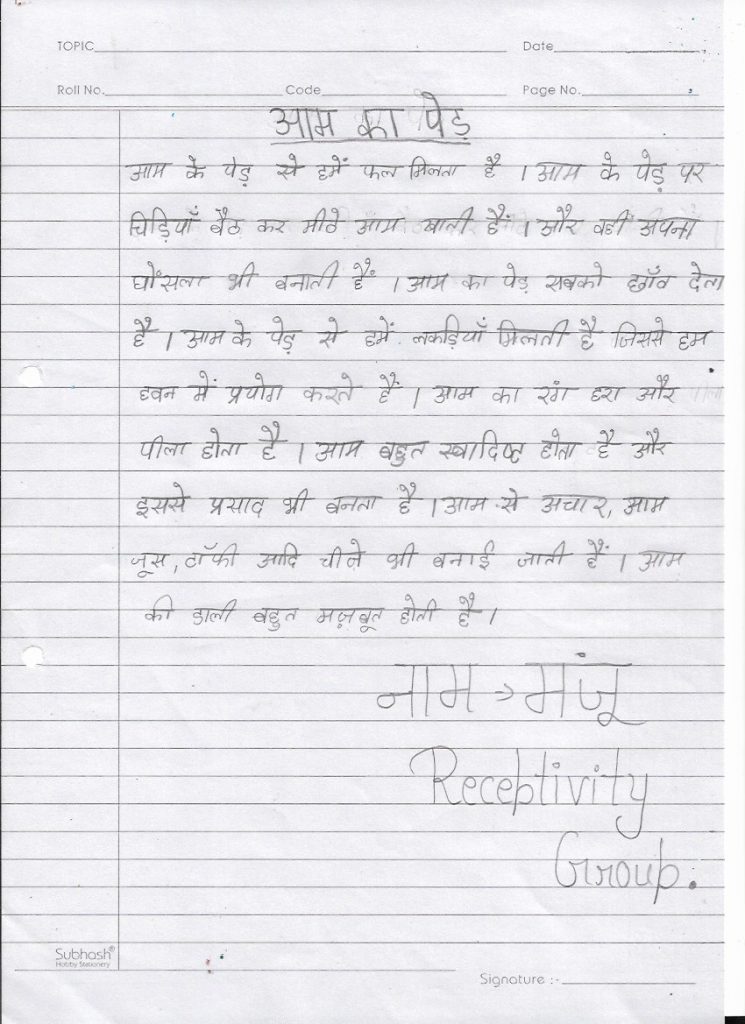 TOPIC Date
Roll No. Code Page No.
आम का पेड़
आम के पेड़ से हमें फल मिलता है । आम के पेड़ पर
चिड़ियाँ बैठ कर मीठे आम खाती हैं । और वहीं अपना
घोंसला भी बनाती हैं । आम का पेड़ सबको छाँव देता
है । आम के पेड़ से हमें लकड़ियाँ मिलती है जिससे हम
हवन में प्रयोग करते हैं । आम का रंग हरा और
पीला होता है । आम बहुत स्वादिष्ट होता है और
इससे प्रसाद भी बनता है । आम से अचार, आम
जूस, टॉफी आदि चीजे भी बनाई जाती हैं । आम
की डाली बहुत मज़बूत होती है ।
नाम → मंजू
Receptivity
Group.
Subhash®
Hobby Stationery
Signature :-